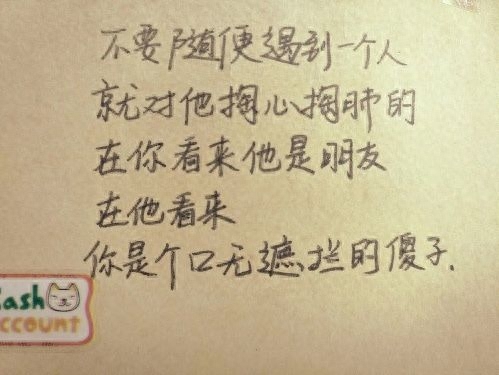 不要随便遇到一个人
就对他掏心掏肺的
在你看来他是朋友
在他看来
你是个口无遮拦的傻子.
Cash
account